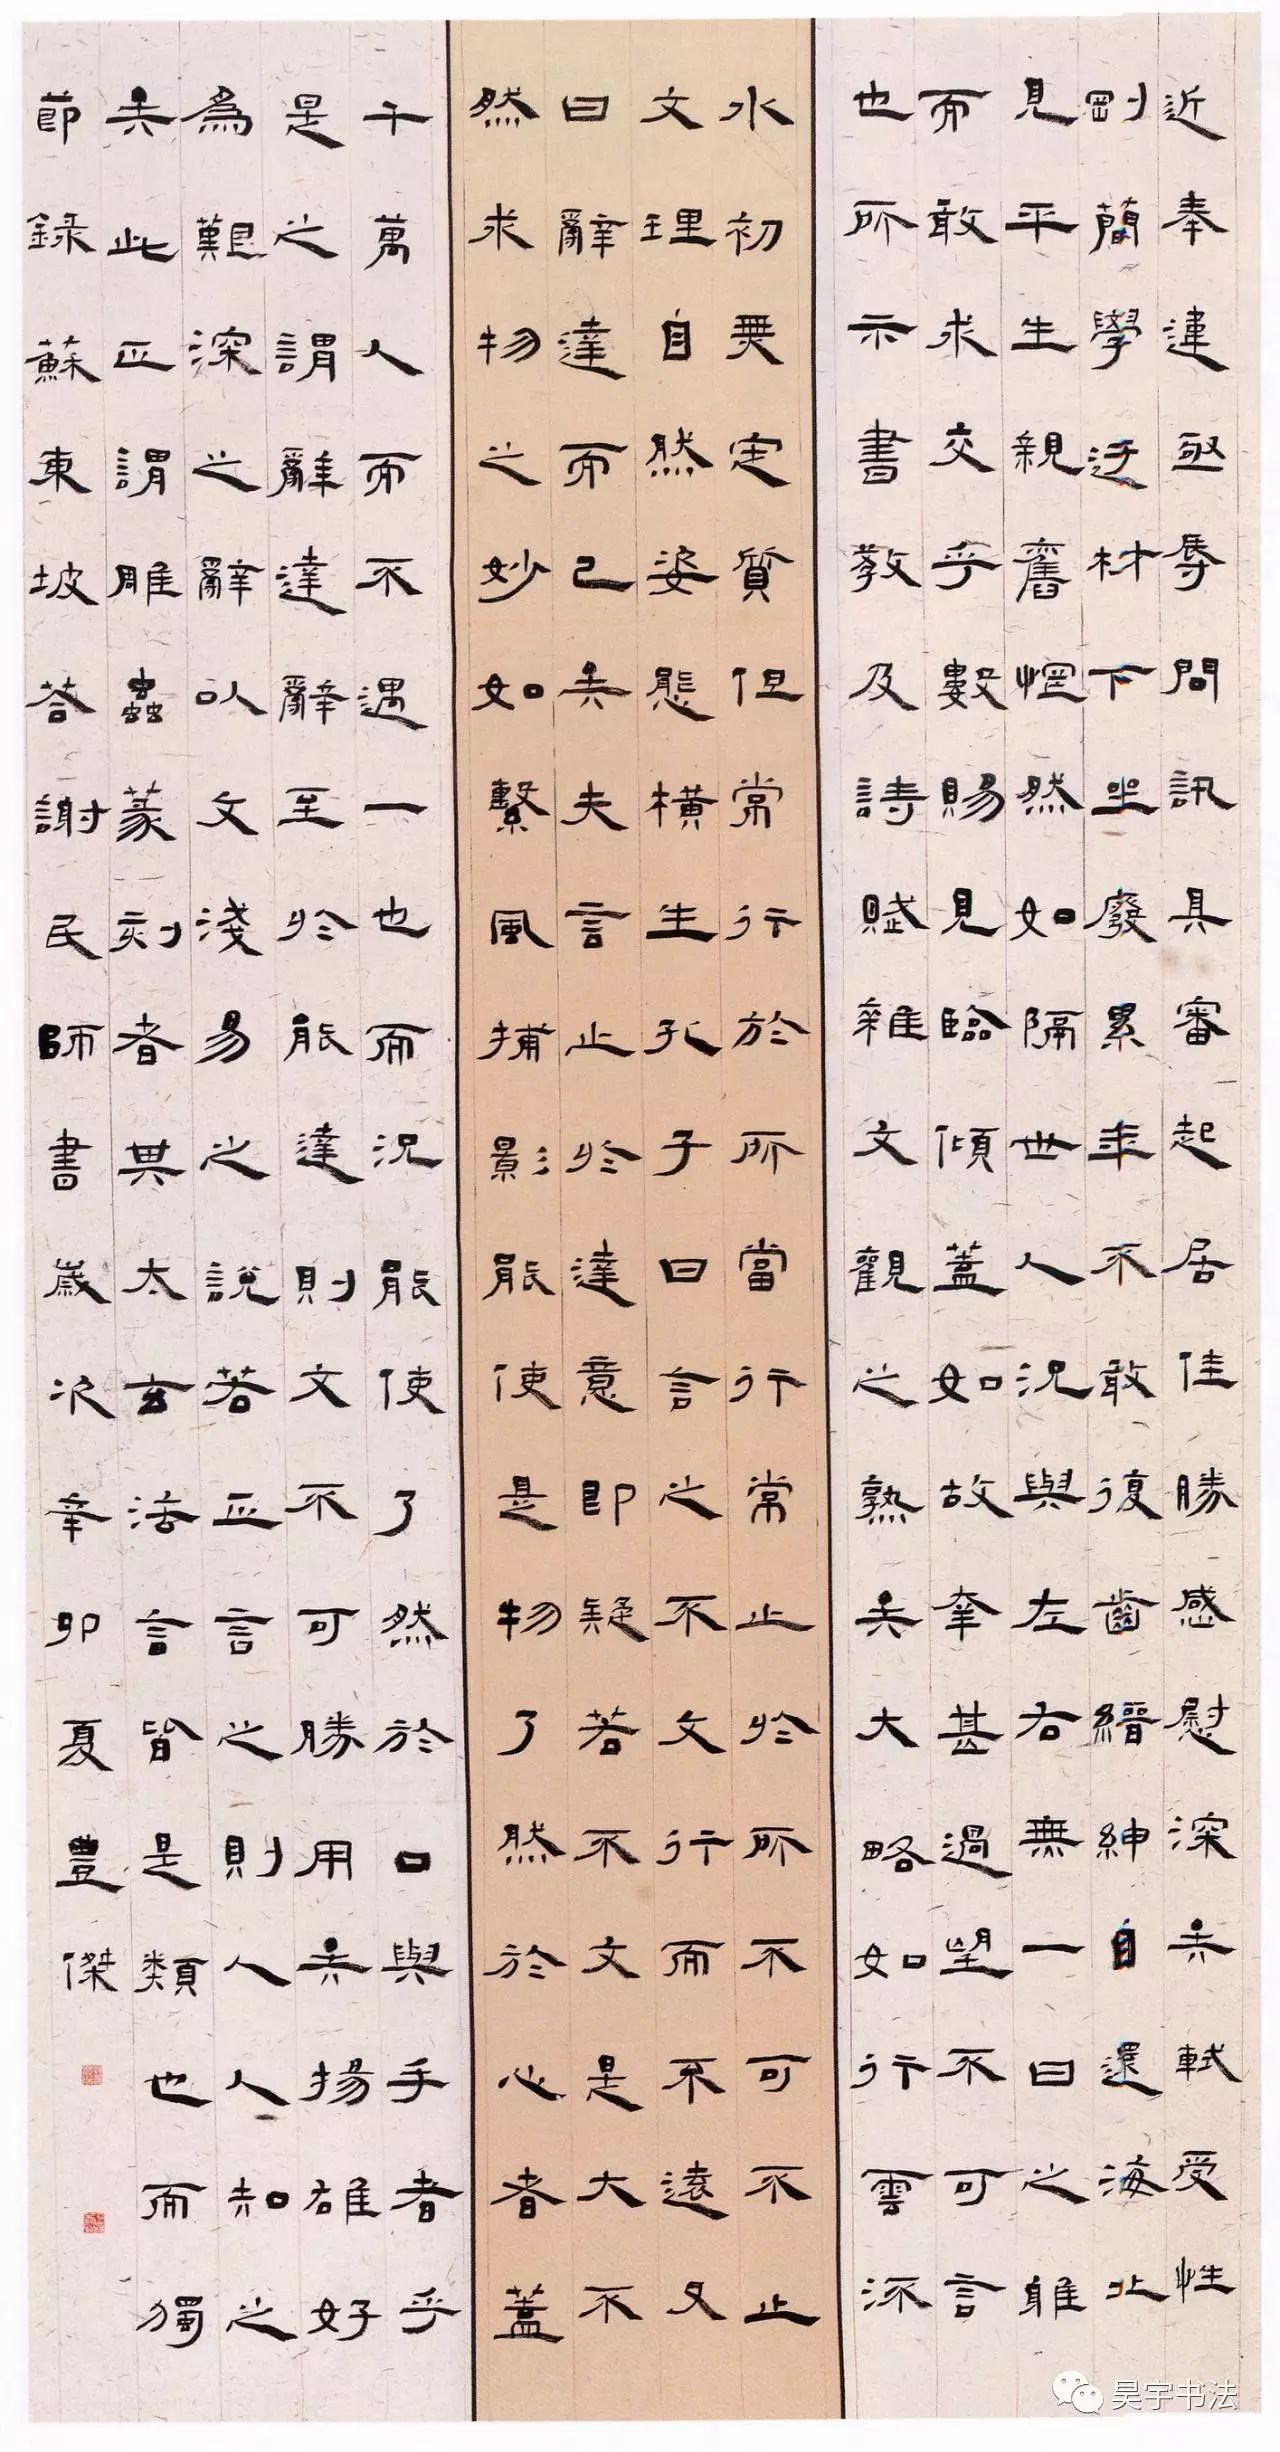 近奉違亟辱問訊具審起居佳勝感慰深矣軾受性
剛簡學迂材下坐廢累年不敢復齒縉紳自還海北
見平生親舊惘然如隔世人況與左右無一日之雅
而敢求交乎數賜見臨傾蓋如故幸甚過望不可言
也所示書教及詩賦雜文觀之熟矣大略如行雲流
水初無定質但常行於所當行常止於所不可不止
文理自然姿態橫生孔子曰言之不文行而不遠又
曰辭達而已矣夫言止於達意即疑若不文是大不
然求物之妙如繫風捕影能使是物了然於心者蓋
千萬人而不遇一也而況能使了然於口與手者乎
是之謂辭達辭至於能達則文不可勝用矣揚雄好
為艱深之辭以文淺易之說若正言之則人人知之
矣此正謂雕蟲篆刻者其太玄法言皆是類也而獨
節録蘇東坡答謝民師書歲次辛卯夏豊傑
昊宇书法